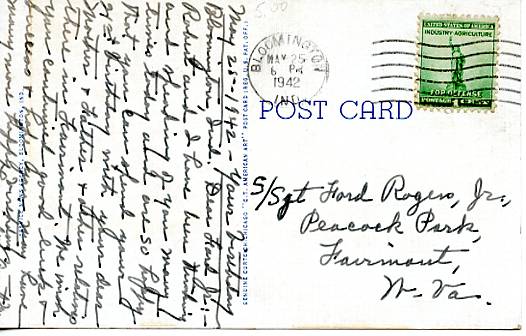 May 25-1942 - Your Birthday
Bloomington, Ind. Dear Ford Jr:-
Rachel & I have been thinking
and speaking of you many
times today and are so happy
that you can spend your
21st Birthday with your dear
Mother & Father & other relatives
there in Fairmont. We wish
you continued good luck &
success & God grant you may have
many more happy birthdays
GENUINE CURTEICH-CHICAGO "C.T. AMERICAN ART" POST CARD (REG. U.S. PAT. OFF.)
BLOOMINGTON
MAY 25
6 PM
1942
IND.
UNITED STATES OF AMERICA
INDUSTRY AGRICULTURE
FOR DEFENSE
POSTAGE 1¢
POST CARD
S/Sgt Ford Rogers, Jr.,
Peacock Park,
Fairmont,
W. Va.